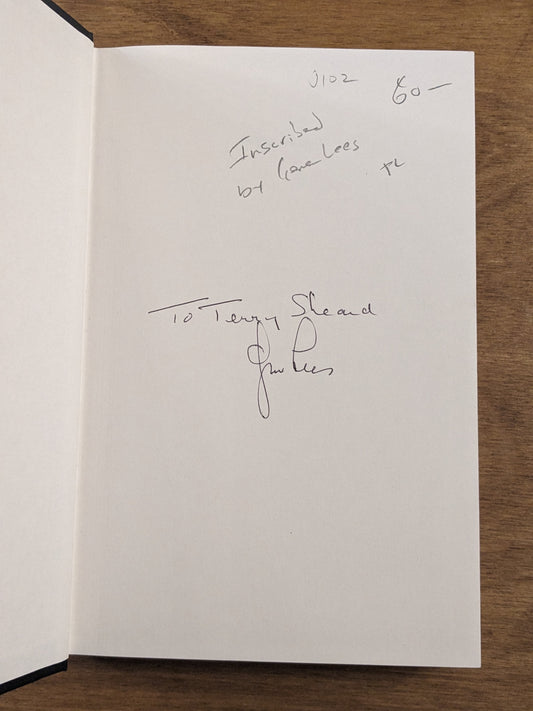 J102
60—
Inscribed
by Gene Lees
To Terry Sheard
Gene Lees